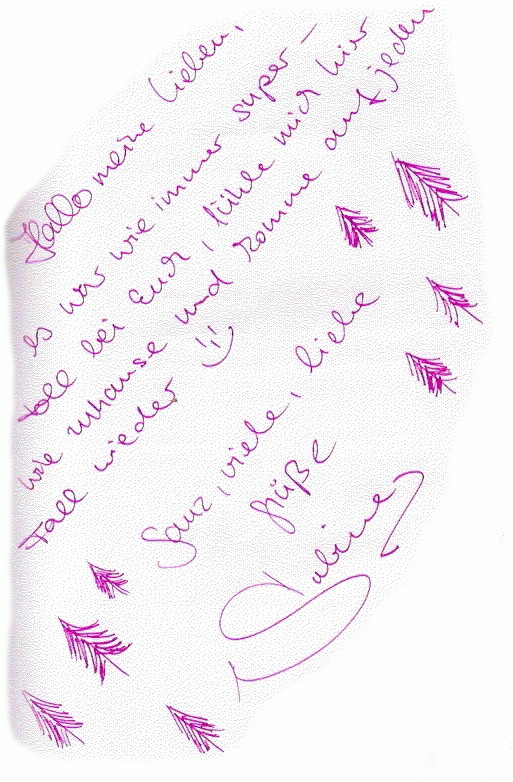 Hallo meine Lieben,
es war wie immer super-
toll bei Euch, fühle mich hier
wie zuhause und komme auf jeden
Fall wieder :)
Ganz, viele, liebe
Grüße
Sabine